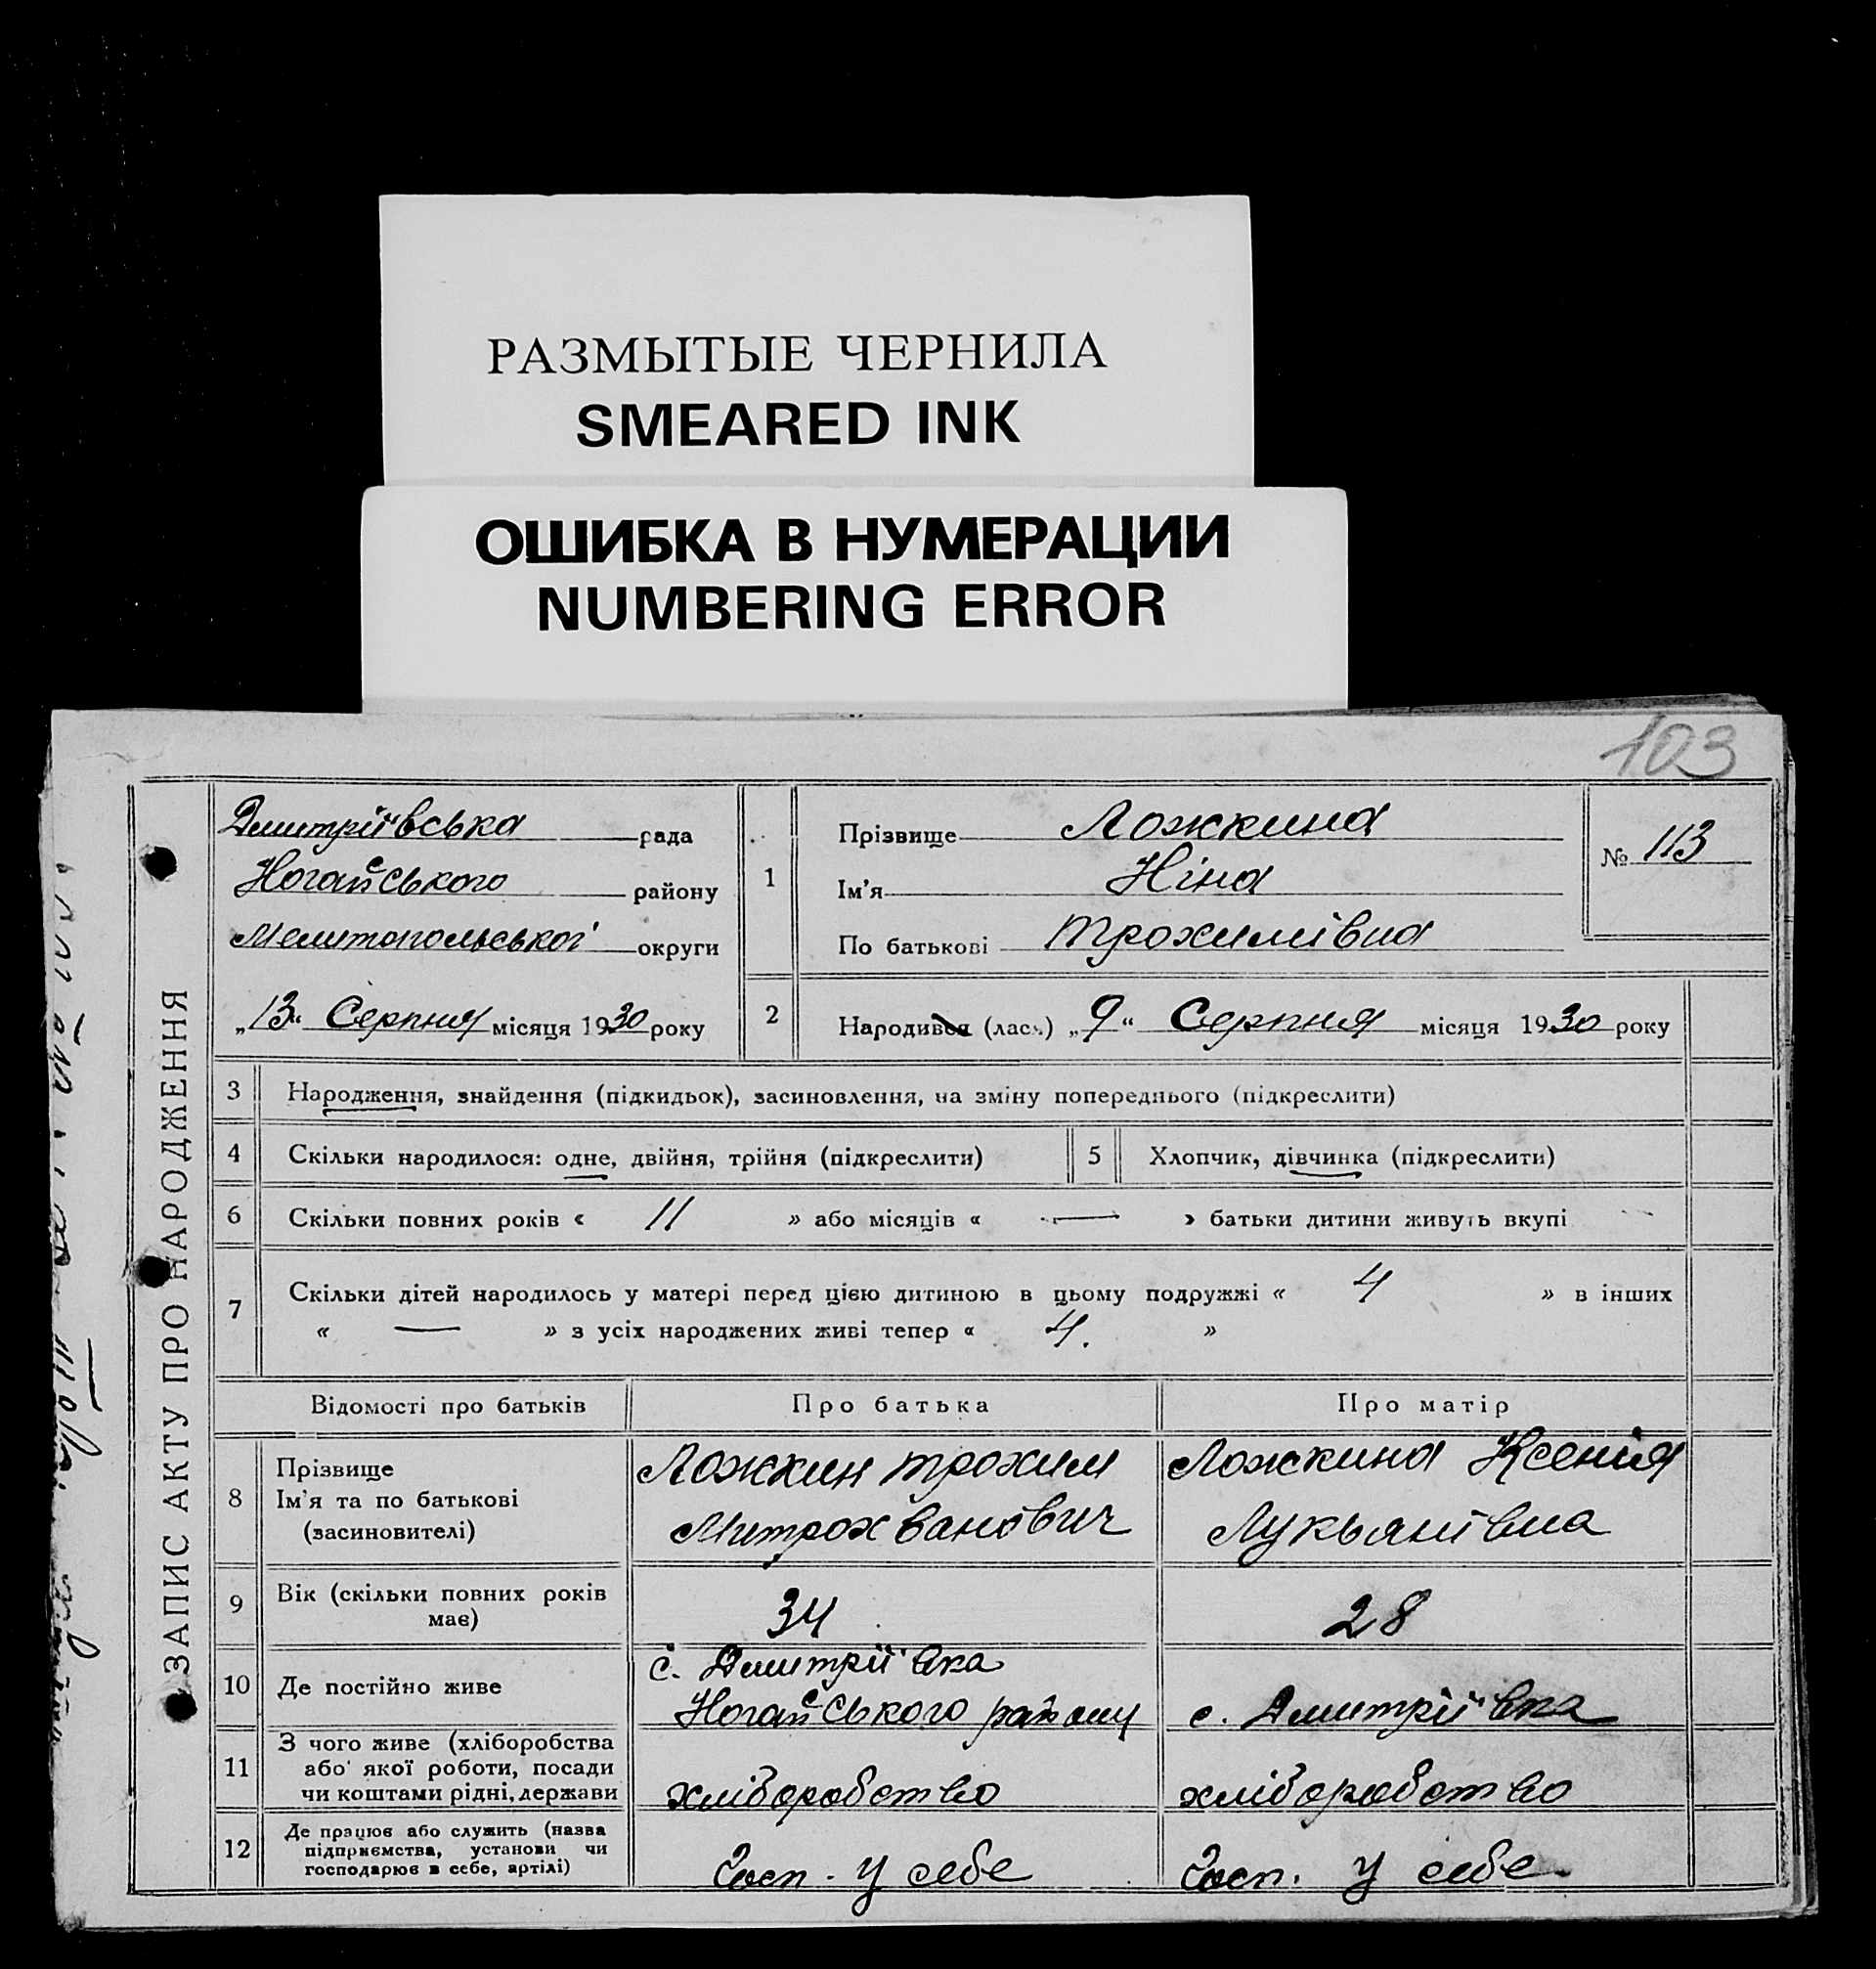 РАЗМЫТЫЕ ЧЕРНИЛА
SMEARED INK
ОШИБКА В НУМЕРАЦИИ
NUMBERING ERROR
103
ЗАПИС АКТУ ПРО НАРОДЖЕННЯ
Дмитріївська рада
Ногайського району
Мелитопольської округи
„13“ Серпня місяця 1930 року
1
Прізвище Ложкина
Ім'я Ніна
По батькові Трохимівна
№ 113
2 Народився (лася) „9“ Серпня місяця 1930 року
3 Народження, знайдення (підкидьок), засиновлення, на зміну попереднього (підкреслити)
4 Скільки народилося: одне, двійня, трійня (підкреслити) 5 Хлопчик, дівчинка (підкреслити)
6 Скільки повних років « 11 » або місяців « — » батьки дитини живуть вкупі
7 Скільки дітей народилось у матері перед цією дитиною в цьому подружжі « 4 » в інших
« — » з усіх народжених живі тепер « 4. »
Відомості про батьків Про батька Про матір
8 Прізвище
Ім'я та по батькові
(засиновителі)
Ложкин Трохим
Митрохванович
Ложкина Ксенія
Лукьянівна
9 Вік (скільки повних років
має)
34 28
10 Де постійно живе
с. Дмитріївка
Ногайського району
с. Дмитріївка
11 З чого живе (хліборобства
або якої роботи, посади
чи коштами рідні, держави
хліборобство хліборобство
12 Де працює або служить (назва
підприємства, установи чи
господарює в себе, артілі)
Госп. у себе Госп. у себе